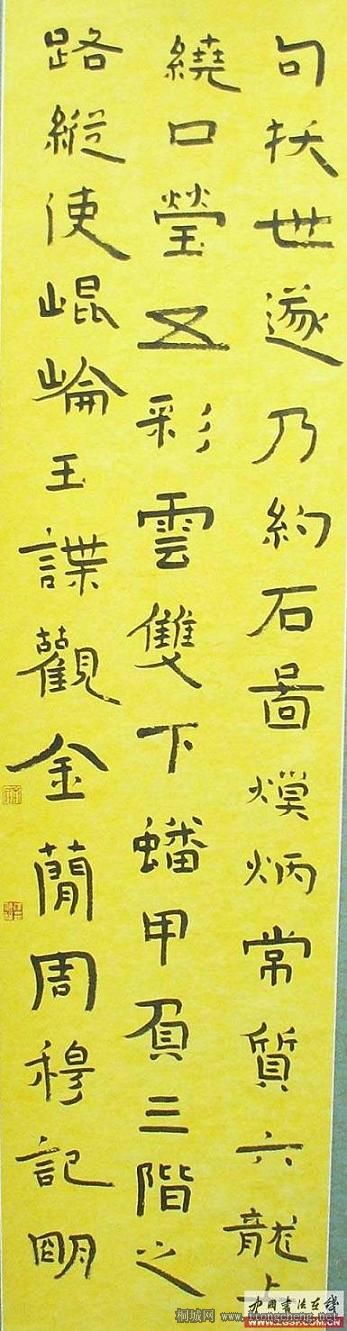 句扶世遂乃約石啚炳常質六龍上
繞口瑩五彩雲雙下蟠甲負三階之
路縱使崐崘玉諜觀金蕳周穆記朙
桐城网
中国书法在线
WWW.ZGSF.COM.CN